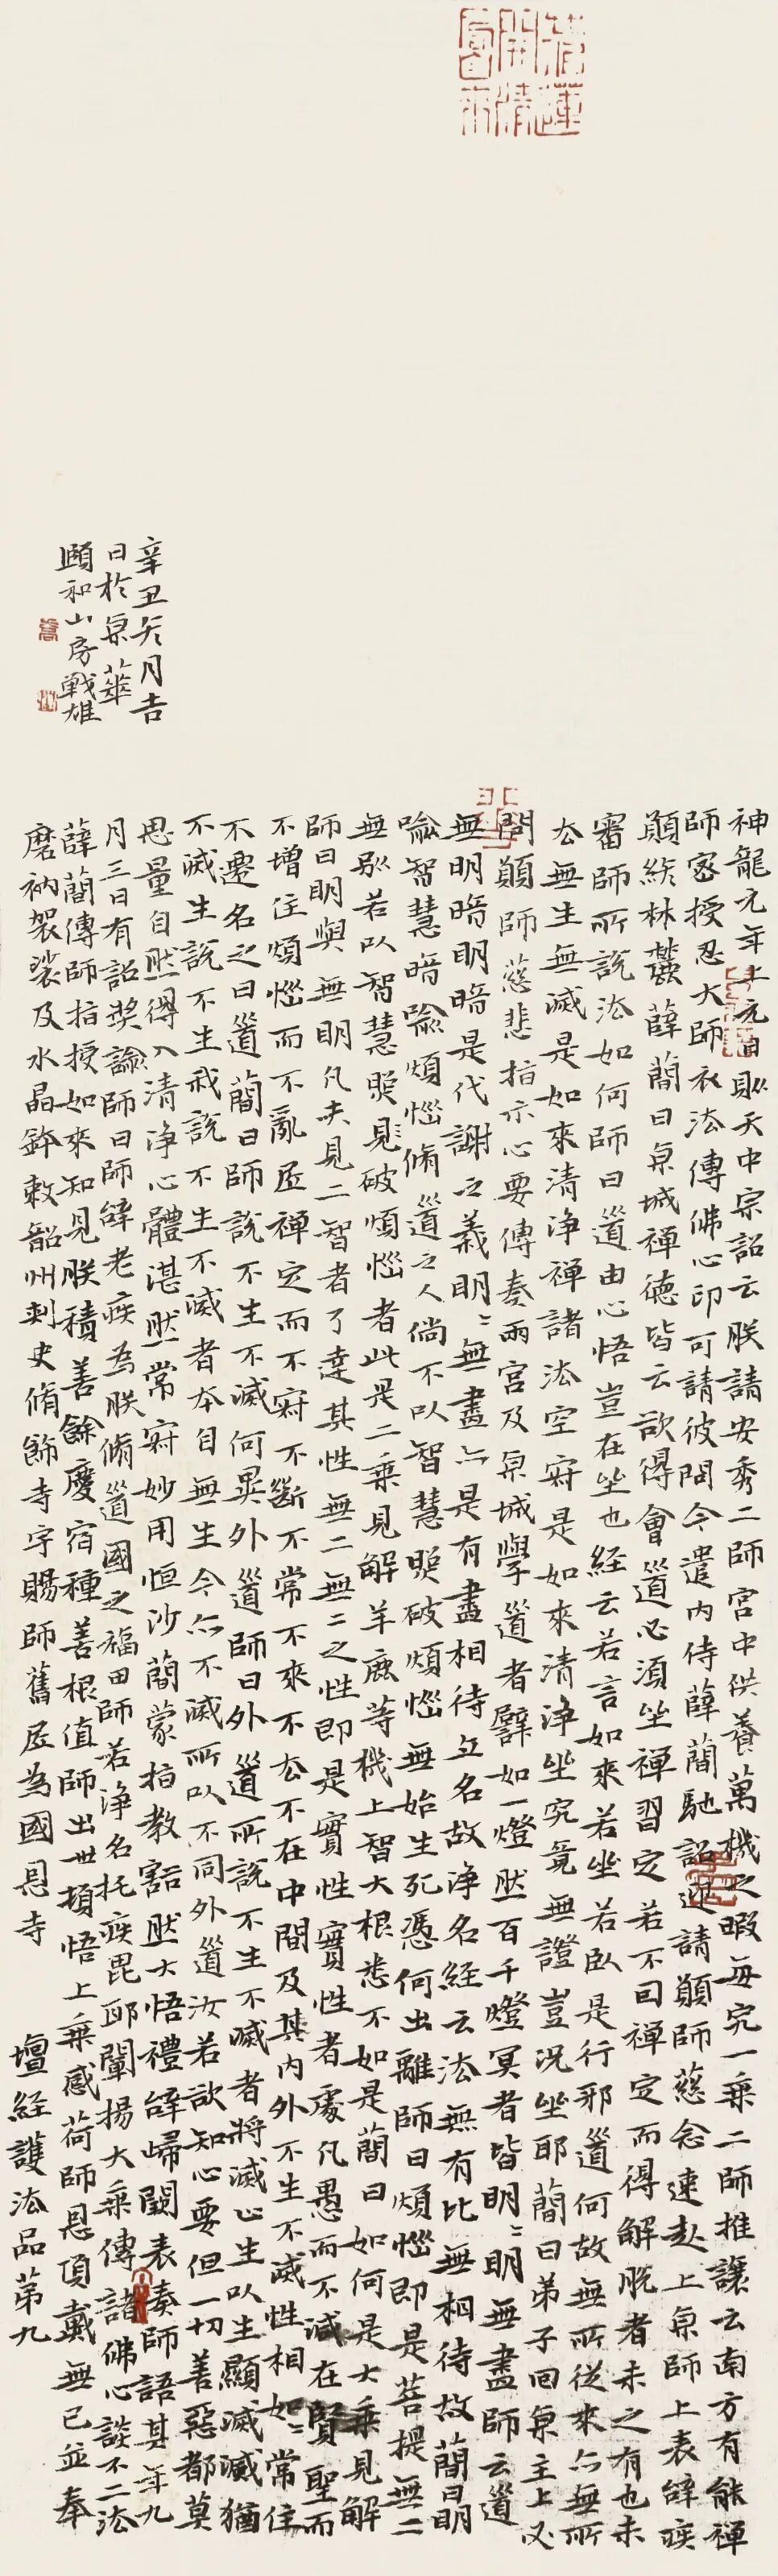 神龍元年上元日則天中宗詔云朕請安秀二師宮中供養萬機之暇每究一乘二師推讓云南方有能禪
師密授忍大師衣法傳佛心印可請彼問今遣內侍薛蕳馳詔迎請願師慈念速赴上京師上表辝疾
願終林麓薛蕳曰京城禪德皆云欲得會道必須坐禪習定若不因禪定而得解脫者未之有也未
審師所說法如何師曰道由心悟豈在坐也経云若言如來若坐若臥是行邪道何故無所從來亦無所
去無生無滅是如來清淨禪諸法空寂是如來清淨坐究竟無證豈況坐耶蕳曰弟子回京主上必
問願師慈悲指示心要傳奏兩宮及京城學道者譬如一燈然百千燈冥者皆明〻明無盡師云道
無明暗明暗是代謝之義明〻無盡亦是有盡相待立名故淨名経云法無有比無相待故蕳曰明
喻智慧暗喻煩惱脩道之人倘不以智慧照破煩惱無始生死憑何出離師曰煩惱即是菩提無二
無別若以智慧照見破煩惱者此是二乘見解羊鹿等機上智大根悉不如是蕳曰如何是大乘見解
師曰明與無明凡夫見二智者了達其性無二無二之性即是實性實性者處凡愚而不減在賢聖而
不增住煩惱而不亂居禪定而不寂不斷不常不來不去不在中間及其內外不生不滅性相如〻常住
不遷名之曰道蕳曰師說不生不滅何異外道師曰外道所說不生不滅者將滅止生以生顯滅滅猶
不滅生說不生我說不生不滅者本自無生今亦不滅所以不同外道汝若欲知心要但一切善惡都莫
思量自然得入清淨心體湛然常寂妙用恒沙蕳蒙指教豁然大悟禮辝歸闕表奏師語其年九
月三日有詔奬諭師曰師辝老疾為朕脩道國之福田師若淨名托疾毘耶闡揚大乘傳諸佛心談不二法
薛蕳傳師指授如來知見朕積善餘慶宿種善根值師出世頓悟上乘感荷師恩頂戴無已並奉
磨衲袈裟及水晶鉢敕韶州刺史脩飾寺宇賜師舊居為國恩寺　壇経護法品第九
辛丑冬月吉
日於京華
頤和山房戰雄